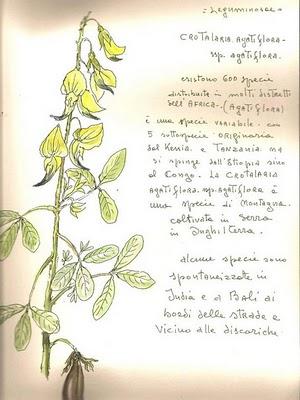 : Leguminosae
CROTALARIA. Agatiflora-
ssp. agatiflora-
esistono 600 specie
distribuite in molti distretti
dell'AFRICA-. (Agatiflora)
è una specie variabile. con
5 sottospecie. originaria
dal Kenia. e Tanzania. ma
si spinge dall'Etiopia sino
al Congo. La CROTALARIA
agatiflora. ssp. agatiflora è
una specie di Montagna.
coltivata in Serra
in Inghilterra.
alcune specie sono
spontaneizzate in
India e a Bali ai
bordi delle strade e
Vicino alle discariche.